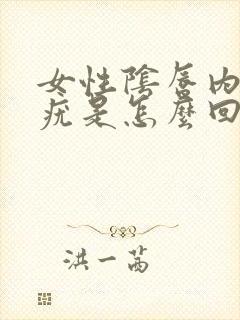 女性陰唇內
疣是怎麼回
洪一茜